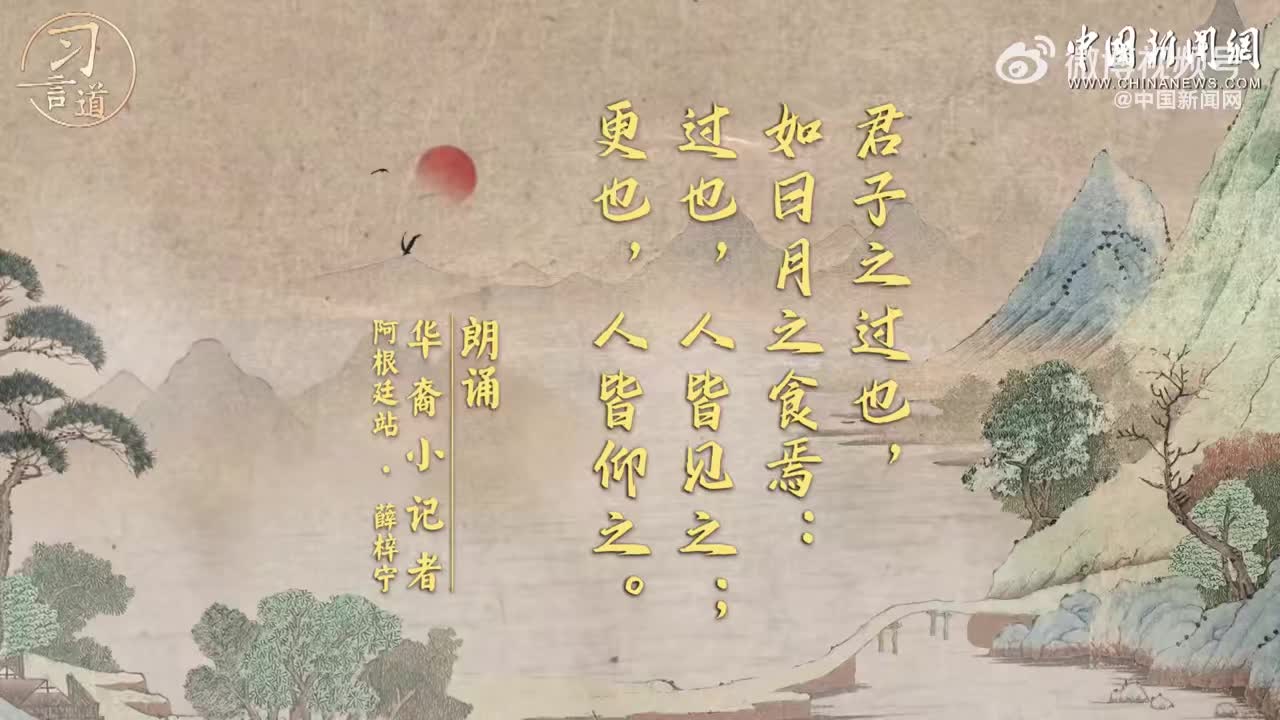 习言道
中國新聞網
WWW.CHINANEWS.COM
微博视频号
@中国新闻网
君子之过也，
如日月之食焉：
过也，人皆见之；
更也，人皆仰之。
朗诵
华裔小记者
阿根廷站·薛梓宁